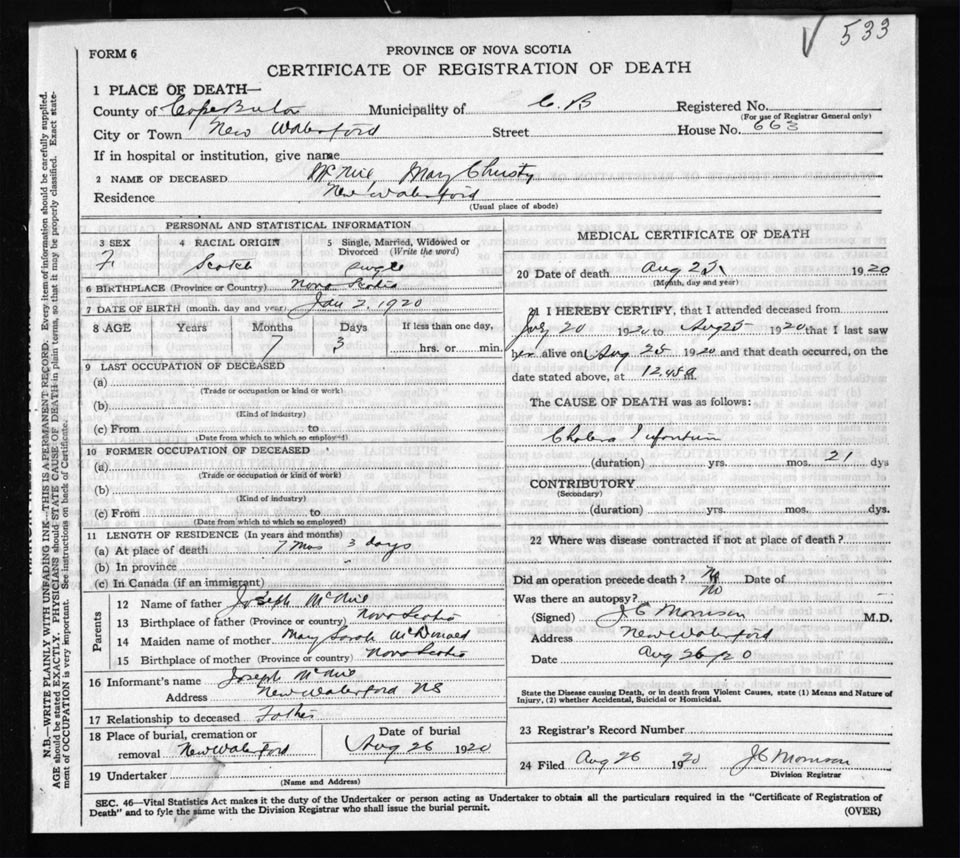 √ 533
FORM 6
PROVINCE OF NOVA SCOTIA
CERTIFICATE OF REGISTRATION OF DEATH
1 PLACE OF DEATH—
County of Cape Breton Municipality of C. B Registered No.
(For use of Registrar General only)
City or Town New Waterford Street House No. 663
If in hospital or institution, give name
2 NAME OF DECEASED McNeil Mary Christy
Residence New Waterford
(Usual place of abode)
PERSONAL AND STATISTICAL INFORMATION
3 SEX 4 RACIAL ORIGIN 5 Single, Married, Widowed or Divorced (Write the word)
F Scotch Single
6 BIRTHPLACE (Province or Country) Nova Scotia
7 DATE OF BIRTH (month, day and year) Jan 2, 1920
8 AGE Years Months Days If less than one day,
7 3 hrs. or min.
9 LAST OCCUPATION OF DECEASED
(a)
(Trade or occupation or kind or work)
(b)
(Kind of industry)
(c) From to
(Date from which to which so employed)
10 FORMER OCCUPATION OF DECEASED
(a)
(Trade or occupation or kind of work)
(b)
(Kind of industry)
(c) From to
(Date from which to which so employed)
11 LENGTH OF RESIDENCE (In years and months)
(a) At place of death 7 Mos 3 days
(b) In province
(c) In Canada (if an immigrant)
Parents
12 Name of father Joseph McNeil
13 Birthplace of father (Province or country) Nova Scotia
14 Maiden name of mother Mary Sarah McDonald
15 Birthplace of mother (Province or country) Nova Scotia
16 Informant's name Joseph McNeil
Address New Waterford NS
17 Relationship to deceased Father
18 Place of burial, cremation or removal New Waterford
Date of burial
Aug 26 1920
19 Undertaker
(Name and Address)
MEDICAL CERTIFICATE OF DEATH
20 Date of death Aug 25 1920
(Month, day and year)
21 I HEREBY CERTIFY, that I attended deceased from
July 20 1920 to Aug 25 1920 that I last saw
her alive on Aug 25 1920 and that death occurred, on the
date stated above, at 12.45 a
The CAUSE OF DEATH was as follows:
Cholera Infantum
(duration) yrs. mos. 21 dys
CONTRIBUTORY
(Secondary)
(duration) yrs. mos. dys.
22 Where was disease contracted if not at place of death?
Did an operation precede death? No Date of
Was there an autopsy? No
(Signed) J C Morrison M.D.
Address New Waterford
Date Aug 26/20
State the Disease causing Death, or in death from Violent Causes, state (1) Means and Nature of
Injury, (2) whether Accidental, Suicidal or Homicidal.
23 Registrar's Record Number
24 Filed Aug 26 1920 J C Morrison
Division Registrar
SEC. 46—Vital Statistics Act makes it the duty of the Undertaker or person acting as Undertaker to obtain all the particulars required in the "Certificate of Registration of
Death" and to fyle the same with the Division Registrar who shall issue the burial permit.
(OVER)
N.B.—WRITE PLAINLY WITH UNFADING INK—THIS IS A PERMANENT RECORD. Every item of information should be carefully supplied.
AGE should be stated EXACTLY. PHYSICIANS should STATE CAUSE OF DEATH in plain terms, so that it may be properly classified. Exact state-
ment of OCCUPATION is very important. See instructions on back of Certificate.